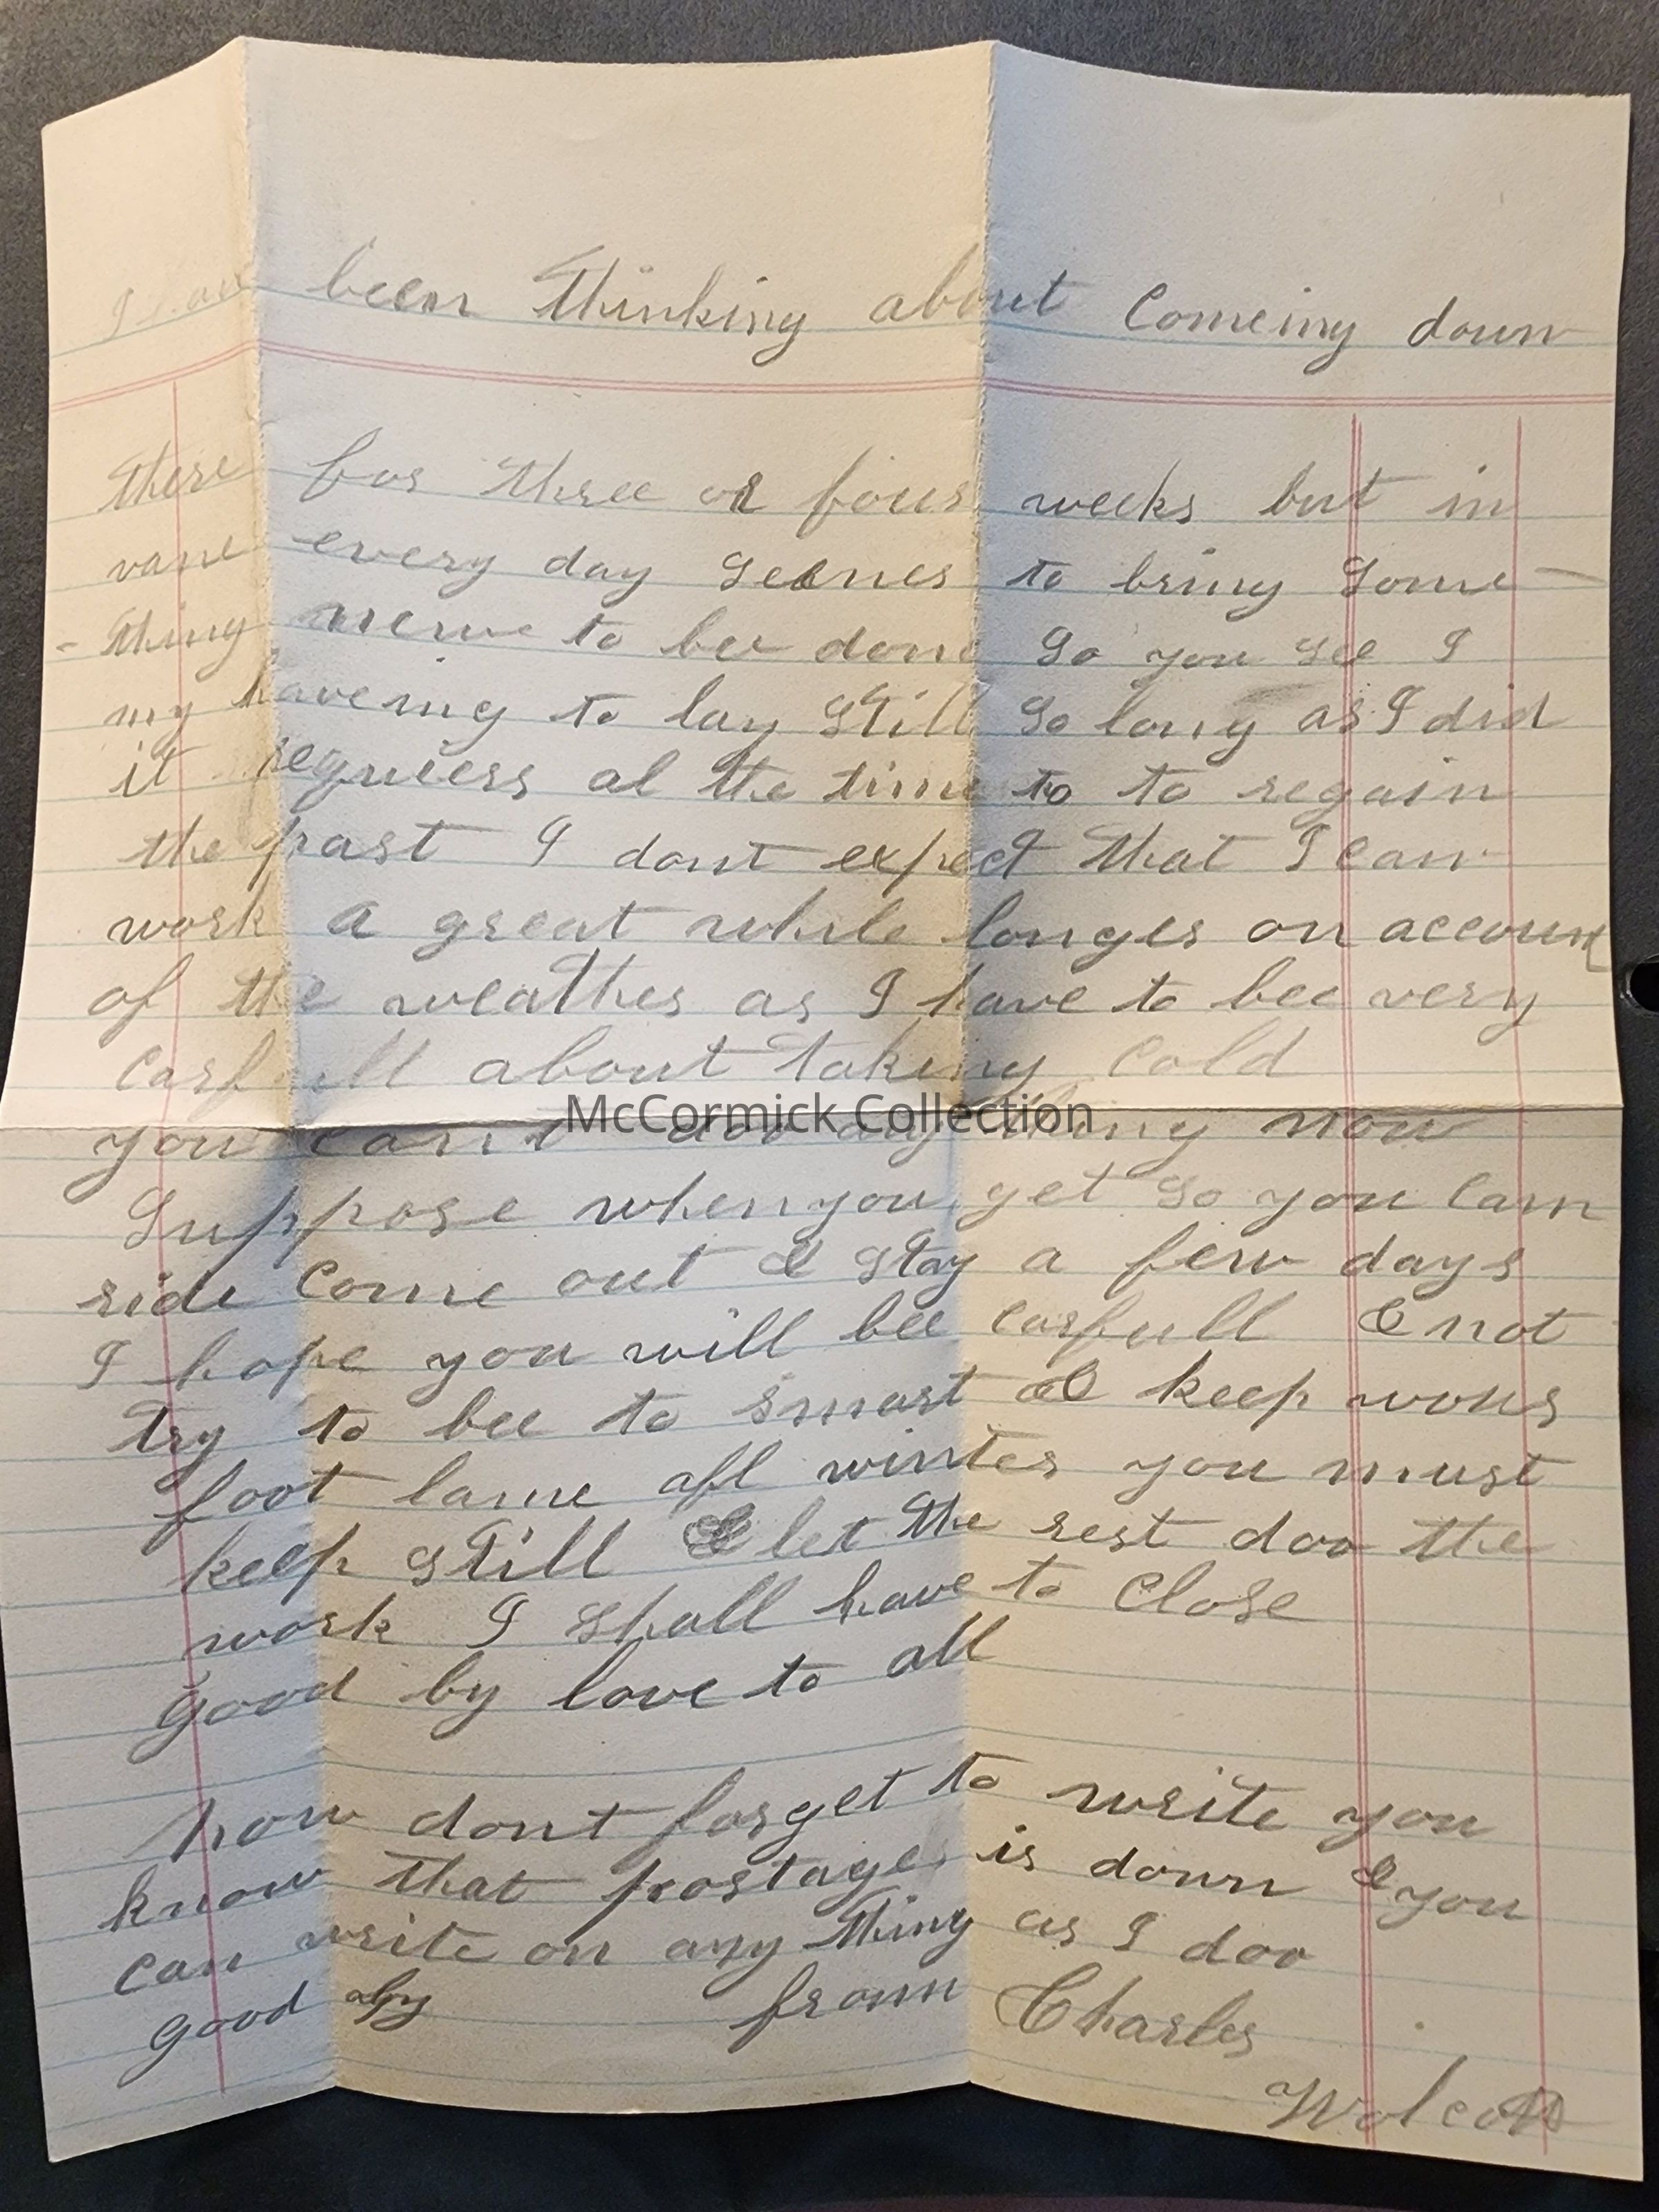 I have been thinking about Comeing down
there for three or four weeks but in
vane every day seemes to bring Some-
-thing new to bee done So you see I
my haveing to lay Still So long as I did
it requiers al the time to to regain
the past I dont expect that I can
work a great while longer on account
of the weather as I have to bee very
Carfull about taking Cold
you cant doo any thing now
Suppose when you get So you Can
ride Come out & Stay a few days
I hope you will bee carfull & not
try to bee to smart & keep
foot lame all winter you must
keep Still & let the rest doo the
work I shall have to Close
good by love to all
now dont forget to write you
know that postage is down & you
can write on any thing as I doo
good by from Charles
Wolcott
McCormick Collection